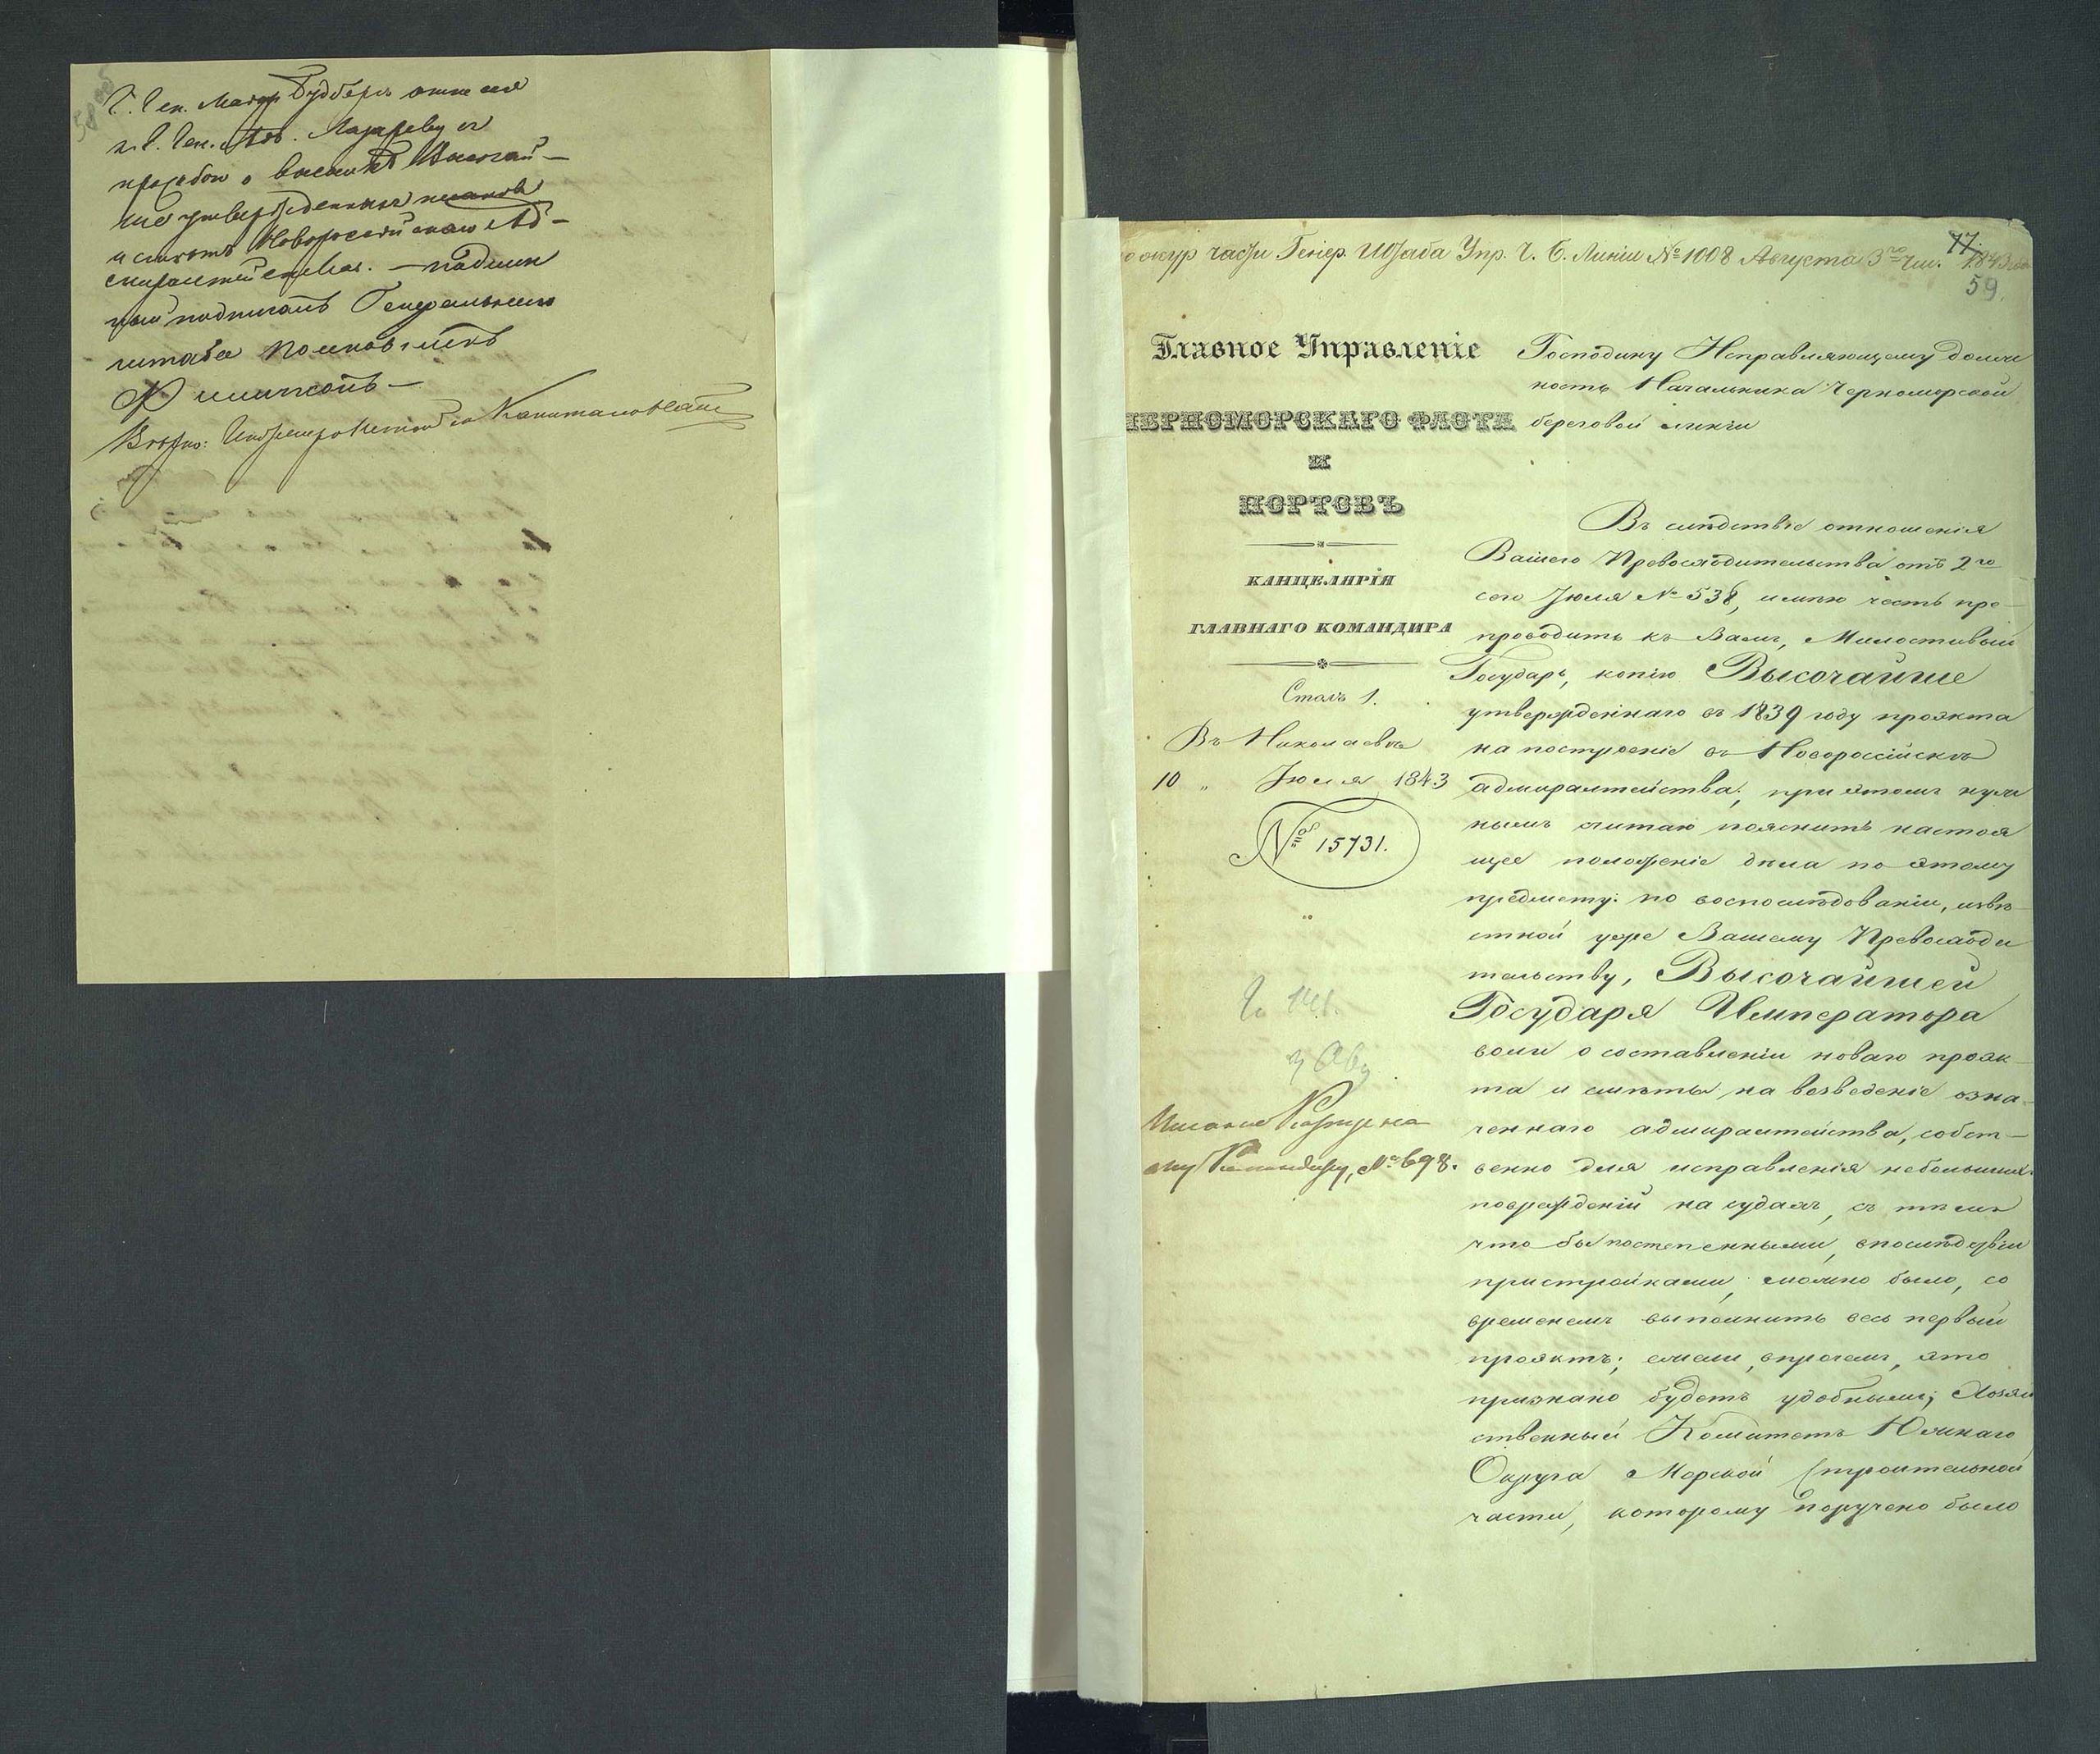 58 об
Г. Ген. Маіор Будбергъ отнесся
к. Г. Ген. Ад. Лазареву съ
прозьбою о высылкѣ Высочай-
ше утвержденныхъ плановъ
и смѣтъ Новороссійскаго Ад-
миралтейства. — Подлин
ный подписалъ Генеральнаго
штаба Полковникъ
Филипсонъ —
Вѣрно:
по онур части Генер. Штаба Упр. Ч. Б. Линіи № 1008 Августа 3го чис. 1843
77
59.
Главное Управленіе
ЧЕРНОМОРСКАГО ФЛОТА
И
ПОРТОВЪ
КАНЦЕЛЯРІЯ
ГЛАВНАГО КОМАНДИРА
Столъ 1.
Въ Николаевѣ
10 „ Июля 1843
№ 15731.
3 Авг
Писано
Командиру, № 698.
Господину Исправляющему долж
ность Начальника Черноморской
береговой линіи
Въ слѣдствіе отношенія
Вашего Превосходительства отъ 2го
сего Июля № 538, имѣю честь пре-
проводить къ Вамъ, Милостивый
Государь, копію Высочайше
утвержденнаго въ 1839 году проэкта
на построеніе въ Новороссійскѣ
адмиралтейства; при этомъ нуж
нымъ считаю пояснить настоя
щее положеніе дѣла по этому
предмету: по воспослѣдованіи, извѣ
стной уже Вашему Превосходи
тельству, Высочайшей
Государя Императора
воли о составленіи новаго проэк
та и смѣты на возведеніе озна-
ченнаго адмиралтейства, собст-
венно для исправленія небольшихъ
поврежденій на судахъ, съ тѣмъ
что бы постепенными, впослѣдствіи
пристройками, можно было, со
временемъ выполнить весь первый
проэктъ; ежели, впрочемъ, это
признано будетъ удобнымъ; Хозяй
ственный Комитетъ Южнаго
Округа Морской Строительной
части, которому поручено было